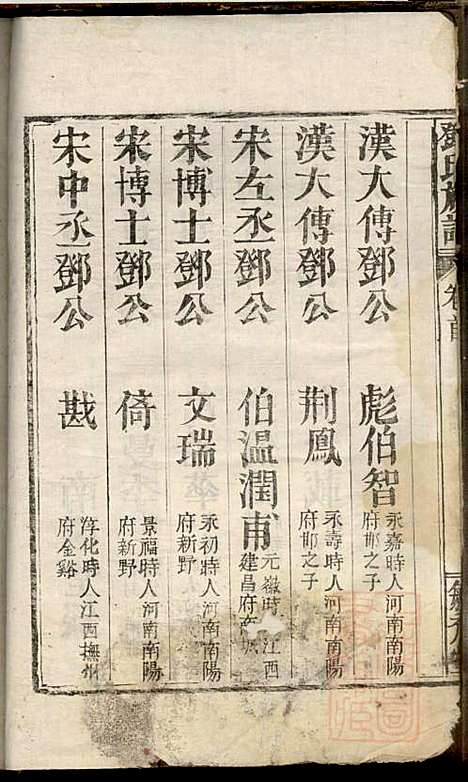 鄧氏族譜 卷首
漢大傅鄧公 彪伯智 永嘉時人河南南陽府邯之子
漢大傅鄧公 荆鳳 永壽時人河南南陽府邯之子
宋左丞鄧公 伯温潤甫 元 時江西建昌府南城
宋博士鄧公 文瑞 永初時人河南南陽府新野
宋博士鄧公 倚 景福時人河南南陽府新野
宋中丞鄧公 戡 淳化時人江西撫州府金谿